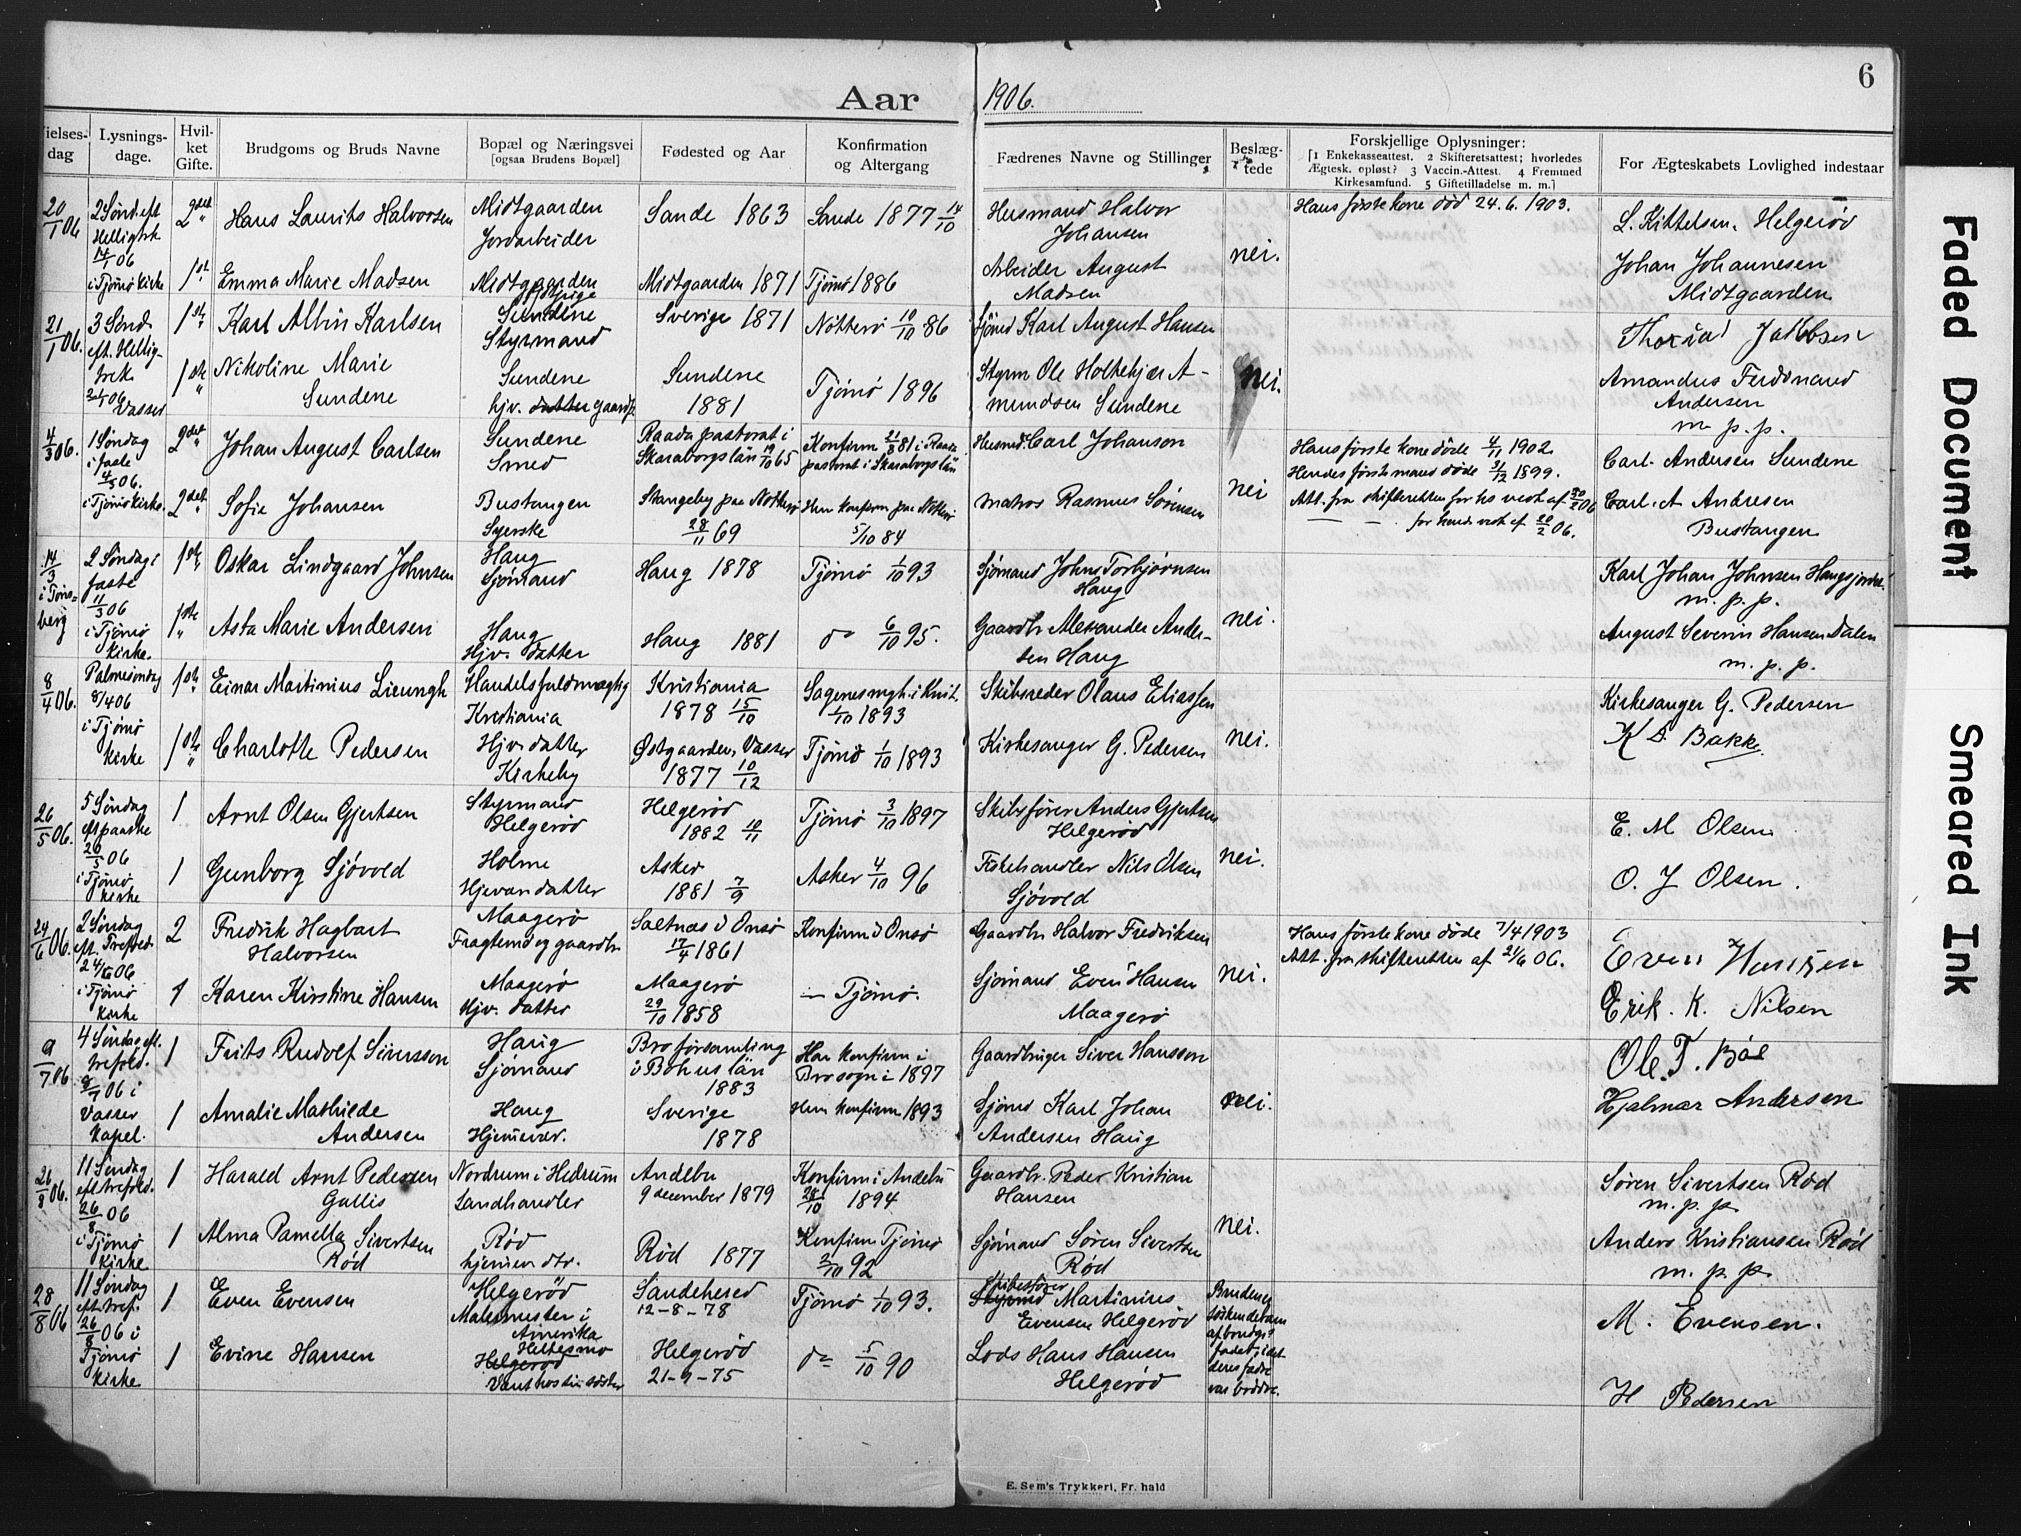 Aar 1906.
6
ielses-dag
Lysnings-dage.
Hvil-ket Gifte.
Brudgoms og Bruds Navne
Bopæl og Næringsvei
[ogsaa Brudens Bopæl]
Fødested og Aar
Konfirmation og Altergang
Fædrenes Navne og Stillinger
Beslæg-tede
Forskjellige Oplysninger:
[1 Enkekasseattest. 2 Skifteretsattest; hvorledes
Ægtesk. opløst? 3 Vaccin.-Attest. 4 Fremmed
Kirkesamfund. 5 Giftetilladelse m. m.]
For Ægteskabets Lovlighed indestaar
20/1 06 2 Sønd. eft Helligtrk 14/1 06 i Tjømø Kirke
2det Hans Laurits Halvorsen Midtgaarden Jordarbeider Sande 1863 Sande 1877 14/10 Husmand Halvor Johansen
Hans første kone død 24.6.1903.
L. Kittelsen. Helgerød
1ste Emma Marie Madsen Midtgaarden Midtgaarden 1871 Tjømø 1886 Arbeider August Madsen nei.
Johan Johannesen Midtgaarden
21/1 06. 3 Sønd. eft. Hellig-trek. 21/1 06 Vasser
1ste Karl Albin Karlsen Sundene Styrmand Sverige 1871 Nøtterø 10/10 86 Sjømd Karl August Hansen
Jakobsen
1ste Nikoline Marie Sundene Sundene hjv. datter gaardb. Sundene 1881 Tjømø 1896 Styrm Ole Holtekjær A-mundsen Sundene nei.
Amandus Ferdinand Andersen m. p. p.
4/3 06. 1 Søndag i faste 4/3 06. i Tjømø Kirke.
2det Johan August Carlsen Sundene Smed Raada pastorat i Skaraborgs län 19/10 65 Konfirm 21/8 81 i Raada pastorat i Skaraborgs län Husmd. Carl Johanson
Hans første kone døde 4/11 1902.
Hendes første mand døde 31/12 1899.
Carl. Andersen Sundene
2det Sofie Johansen Bustangen Syerske Stangeby paa Nøtterø 28/11 69 Hun konfirm paa Nøtterø 5/10 84 matros Rasmus Sørensen nei
Att. fra skifteretten for hs vedk af 20/2 06
— — for hends vedk af 20/2 06.
Carl. A Andresen Bustangen
14/3 i Tøns-berg 2 Søndag i faste 11/3 06 i Tjømø Kirke.
1ste Oskar Lindgaard Johnsen Haug Sjømand Haug 1878 Tjømø 1/10 93 Sjømand Johns Torbjørnsen Haug
Karl Johan Johnsen Haugsjordet m. p. p.
1ste Asta Marie Andersen Haug Hjv. datter Haug 1881 do 6/10 95. Gaardbr Alexander Ander-sen Haug nei.
August Severin Hansen Dalen m. p. p.
8/4 06. Palmesøndag 8/4 06 i Tjømø Kirke
1ste Einar Martinius Lieungh Handelsfuldmægtig Kristiania Kristiania 1878 15/10 Sagenes mgh. i Krist. 1/10 1893 Skibsreder Olaus Eliassen
Kirkesanger G. Pedersen
1ste Charlotte Pedersen Hjv. datter Kirkeby Østgaarden, Vasser 1877 10/12 Tjømø 1/10 1893 Kirkesanger G. Pedersen nei.
K D. Bakke.
26/5 06. 5 Søndag eft paaske 26/5 06 i Tjømø Kirke
1 Arnt Olsen Gjertsen Styrmand Helgerød Helgerød 1882 10/11 Tjømø 3/10 1897 Skibsfører Anders Gjertsen Helgerød
E. M Olsen
1 Gunborg Sjøvold Holme Hjevær datter Asker 1881 7/9 Asker 4/10 96 Fiskehandler Nils Olsen Sjøvold nei.
O. J Olsen.
24/6 06. 2 Søndag eft. Trefold. 24/6 06 i Tjømø Kirke
2 Fredrik Hagbart Halvorsen Maagerø Fragtemd og gaardbr. Saltnæs i Onsø 17/4 1861 Konfirm i Onsø Gaardbr Halvor Fredriksen
Hans første kone døde 7/4 1903
Att. fra skifteretten af 21/6 06.
Even Hansen
1 Karen Kirstine Hansen Maagerø Hjv. datter Maagerø 29/10 1858 — Tjømø. Sjømand Even Hansen Maagerø nei.
Erik. K. Nilsen
9/7 06 4 Søndag eft. trefold. 8/7 06 i Vasser kapel.
1 Frits Rudolf Siversson Haug Sjømand Bro församling i Bohus län 1883 Han konfirm i Bro sogn i 1897 Gaardbruger Siver Hansson
Ole. T. Bøe
1 Amalie Mathilde Andersen Haug Hjemmevær. Sverige 1878 Hun konfirm 1893 Sjømd Karl Johan Andersen Haug nei.
Hjalmar Andersen
26/8 06. 11 Søndag eft trefold. 26/8 06 i Tjømø Kirke
1 Harald Arnt Pedersen Gallis Nordrum i Hedrum Landhandler Andebu 9 december 1879 Konfirm i Andebu 28/10 1894 Gaardbr. Peder Kristian Hansen
Søren Sivertsen Rød m. p. p.
1 Alma Pamella Sivertsen Rød Rød hjemmev dtr. Rød 1877 Konfirm Tjømø 2/10 92 Sjømand Søren Sivertsen Rød nei.
Anders Kristiansen Rød m. p. p.
28/8 06 11 Søndag eft. tref. 26/8 06 i Tjømø Kirke
1 Even Evensen Helgerød Malermester i Amerika Sandehered 12-8-78 Tjømø 1/10 93. Skibsfører Styrmd Martinius Evensen Helgerød
Brudens søskendebarn af brudgs fader, idet deres fædre var brødre.
M. Evensen.
1 Evine Hansen Helgerød Helgerød 21-9-75 do 5/10 90 Lods Hans Hansen Helgerød
H Pedersen
E. Sem's Trykkeri, Fr. hald
Faded Document
Smeared Ink